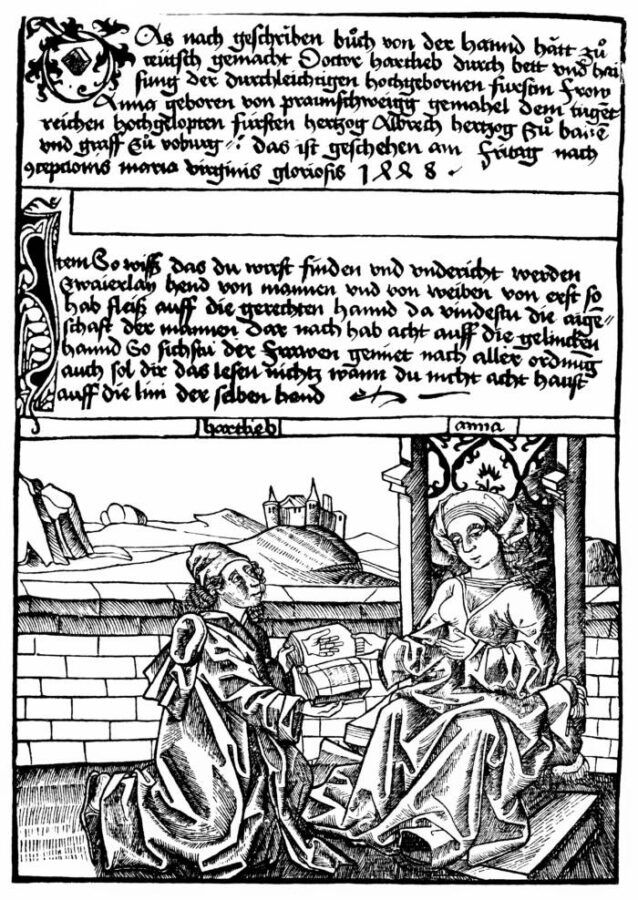 Das nach geschriben buͦch von der hannd hätt zuͦ
teütsch gemacht Doctor hartlieb durch bett vnd hai
sung der durchleichtigen hochgebornen fürstin frow
Anna geboren von praunschweigg gemahel dem tuget
reichen hochgelopten fürsten hertzog Albrech hertzog zuͦ baiern
vnd graff zuͦ voburg : das ist geschehen am fritag nach
concepcionis maria virginis gloriosis 1448 .
Item So wiss das du wirst finden vnd vndericht werden
zwaierlay hend von mannen vnd von weiben von erst so
hab fleiß auff die gerechten hannd da vindestu die aigē=
schaft der mannen dar nach hab acht auff die gelincken
hannd So sichstu der frawen geniet nach aller ordnūg
auch sol dir das lesen nichtz wann du nicht acht haust
auff die lini der selben hend
hartlieb
anna